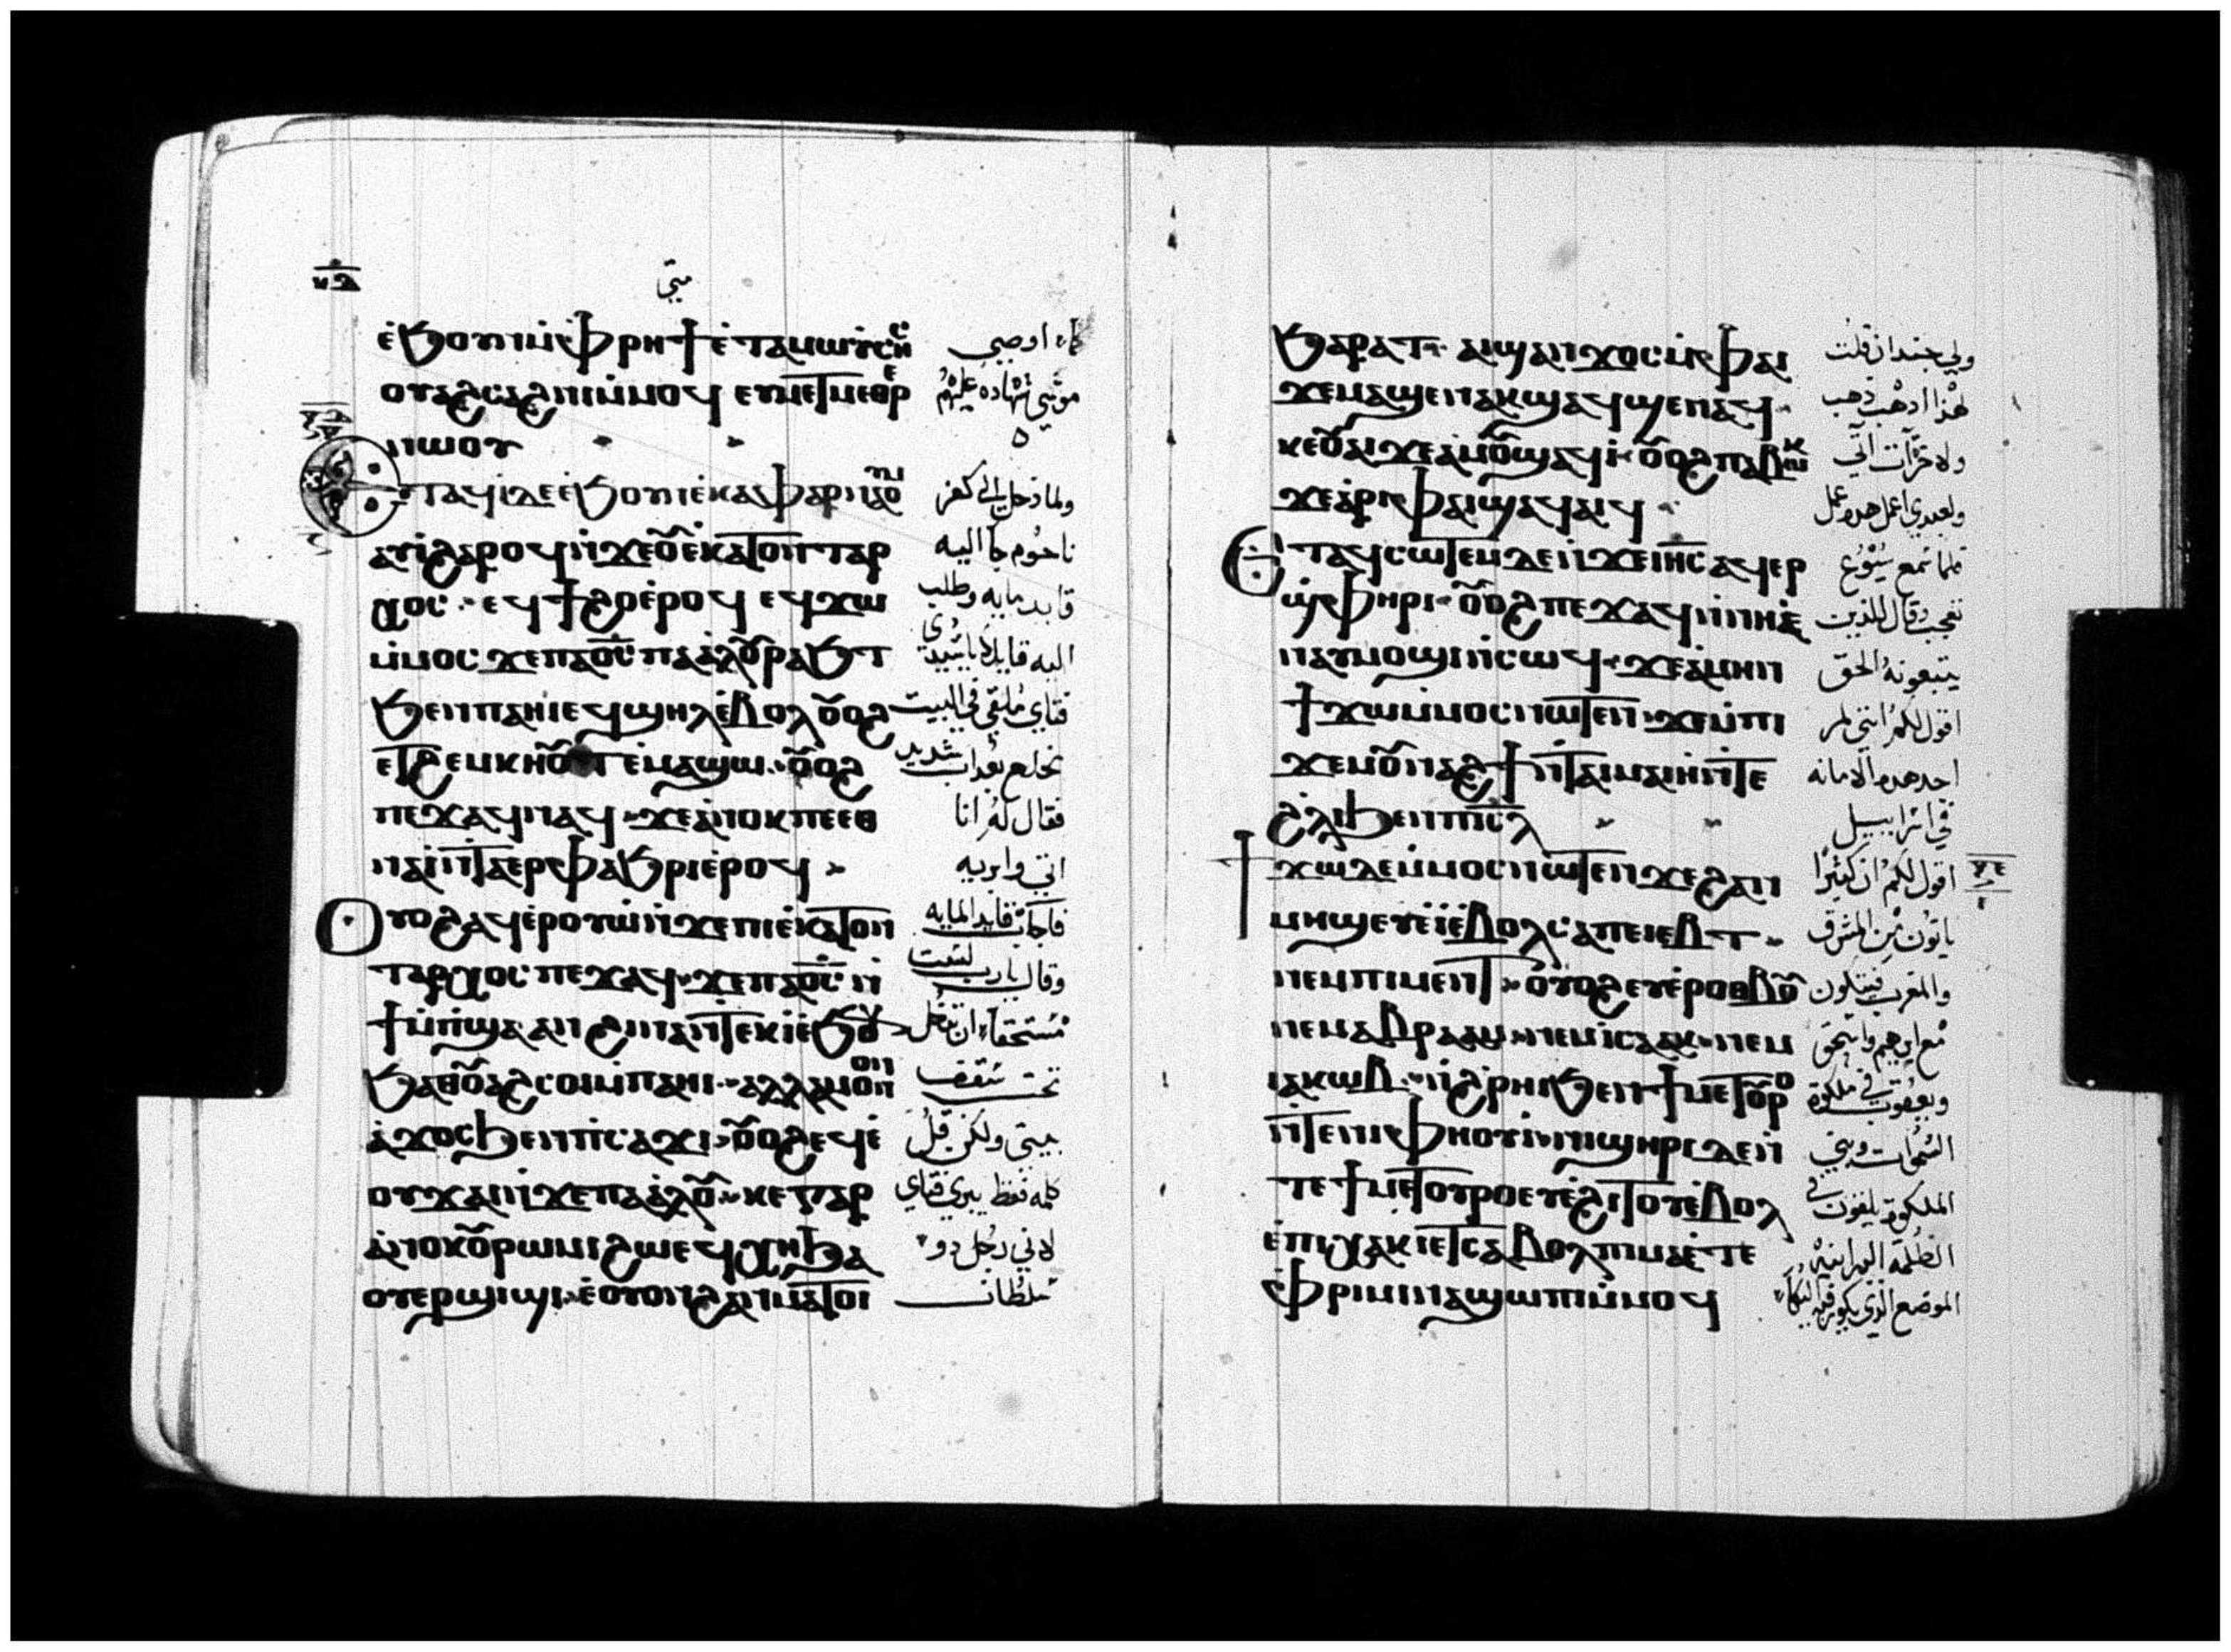 متي
ⲉ̀ϧⲟⲩⲛ ⲙ̀ⲫⲣⲏϯ ⲉ̀ⲧⲁⲙⲱⲩⲥⲏⲥ كما اوصي
ⲟⲩⲁϩⲥⲁϩⲛⲓ ⲙ̀ⲙⲟϥ ⲉⲩⲙⲉⲧⲙⲉⲑⲣⲉ موسي شهاده عليهم
ⲛⲱⲟⲩ
ⲉⲧⲁϥⲓ ⲇⲉ ⲉ̀ϧⲟⲩⲛ ⲉ̀ⲕⲁⲫⲁⲣⲛⲁⲟⲩⲙ ولما دخل الي كفر
ⲁϥⲓ̀ ϩⲁⲣⲟϥ ⲛ̀ϫⲉⲟⲩⲉ̀ⲕⲁⲧⲟⲛⲧⲁⲣ ناحوم جا اليه
ⲭⲟⲥ ⲉϥϯϩⲟ ⲉ̀ⲣⲟϥ ⲉϥϫⲱ قايد مايه وطلب
ⲙ̀ⲙⲟⲥ ϫⲉⲡⲁ⳪ ⲡⲁⲁ̀ⲗⲟⲩ ⲣⲁϧⲧ اليه قايلا ياسيدي
ϧⲉⲛⲡⲁⲏⲓ ⲉϥϣⲏⲗ ⲉ̀ⲃⲟⲗ ⲟⲩⲟϩ فتاي ملقي في البيت
ⲉⲧϩⲉⲙⲕⲏⲟⲩⲧ ⲉ̀ⲙⲁϣⲱ ⲟⲩⲟϩ مخلع بعداب شديد
ⲡⲉϫⲁϥ ⲛⲁϥ ϫⲉⲁ̀ⲛⲟⲕ ⲡⲉⲑ فقال له انا
ⲛⲁⲓ̀ ⲛ̀ⲧⲁⲉⲣⲫⲁϧⲣⲓ ⲉ̀ⲣⲟϥ اتي وابريه
ⲟⲩⲟϩ ⲁϥⲉ̀ⲣⲟⲩⲱ̀ ⲛ̀ϫⲉⲡⲓⲉ̀ⲕⲁⲧⲟⲛ فاجاب قايد المايه
ⲧⲁⲣⲭⲟⲥ ⲡⲉϫⲁϥ ϫⲉⲡⲁ⳪ ⲛ̀ وقال يارب لست
ϯⲙ̀ⲡϣⲁ ⲁⲛ ϩⲓⲛⲁ ⲛ̀ⲧⲉⲕⲓ̀ ⲉ̀ϧⲟⲩⲛ مستحقا ان تدخل
ϧⲁⲑⲟⲩⲁϩⲥⲟⲓ ⲙ̀ⲡⲁⲏⲓ ⲁⲗⲗⲁ ⲙⲟⲛⲟⲛ تحت سقف
ⲁ̀ϫⲟⲥ ϧⲉⲛⲡⲥⲁϫⲓ ⲟⲩⲟϩ ⲉϥⲉ̀ بيتي ولكن قل
ⲟⲩϫⲁⲓ ⲛ̀ϫⲉⲡⲁⲁ̀ⲗⲟⲩ ⲕⲉⲅⲁⲣ كلمه فقط يبري فتاي
ⲁ̀ⲛⲟⲕ ⲟⲩⲣⲱⲙⲓ ϩⲱ ⲉϥⲭⲏ ϧⲁ لاني رجل دو
ⲟⲩⲉⲣϣⲓϣⲓ ⲉ̀ⲟⲩⲟⲛ ϩⲁⲛⲙⲁⲧⲟⲓ سلطان
ϧⲁⲣⲁⲧ ⲁⲓϣⲁⲛϫⲟⲥ ⲙ̀ⲫⲁⲓ ولي جند ان قلت
ϫⲉⲙⲁϣⲉⲛⲁⲕ ϣⲁϥϣⲉⲛⲁϥ لهذا ادهب دهب
ⲕⲉⲟⲩⲁⲓ ϫⲉⲁⲙⲟⲩ ϣⲁϥⲓ̀ ⲟⲩⲟϩ ⲡⲁⲃⲱⲕ ولاخر ات اتي
ϫⲉⲁ̀ⲣⲓⲫⲁⲓ ϣⲁϥⲁⲓϥ ولعبدي اعمل هدا عمل
ⲉⲧⲁϥⲥⲱⲧⲉⲙ ⲇⲉ ⲛ̀ϫⲉⲓⲏⲥ ⲁϥⲉⲣ فلما سمع يسوع
ϣ̀ⲫⲏⲣⲓ ⲟⲩⲟϩ ⲡⲉϫⲁϥ ⲛ̀ⲛⲏⲉ تعجب وقال للذين
ⲛⲁⲩⲙⲟϣⲓ ⲛ̀ⲥⲱϥ ϫⲉⲁ̀ⲙⲏⲛ يتبعونه الحق
ϯϫⲱ ⲙ̀ⲙⲟⲥ ⲛⲱⲧⲉⲛ ϫⲉⲙ̀ⲡⲓ اقول لكم انني لم
ϫⲉⲙⲟⲩⲛⲁϩϯ ⲛ̀ⲧⲁⲓⲙⲁⲓⲏ ⲛ̀ⲧⲉ اجد هده الامانه
ϩⲗⲓ ϧⲉⲛⲡⲓⲥⲗ في اسراييل
ϯϫⲱ ⲇⲉ ⲙ̀ⲙⲟⲥ ⲛⲱⲧⲉⲛ ϫⲉϩⲁⲛ اقول لكم ان كثيرا
ⲙⲏϣ ⲉⲩⲉ̀ⲓ̀ ⲉ̀ⲃⲟⲗ ⲥⲁⲡⲉⲓⲉⲃⲧ ياتون من المشرق
ⲛⲉⲙⲡⲓⲙⲉⲛⲧ ⲟⲩⲟϩ ⲉⲩⲉ̀ⲣⲟⲑⲃⲟⲩ والمغرب فيتكون
ⲛⲉⲙⲁⲃⲣⲁⲁⲙ ⲛⲉⲙⲓⲥⲁⲁⲕ ⲛⲉⲙ مع ابرهيم واسحق
ⲓⲁⲕⲱⲃ ⲛ̀ϩⲣⲏⲓ ϧⲉⲛϯⲙⲉⲧⲟⲩⲣⲟ ويعقوب في ملكوة
ⲛ̀ⲧⲉⲛⲓⲫⲏⲟⲩⲓ̀ ⲛⲓϣⲏⲣⲓ ⲇⲉ ⲛ̀ السموات وبني
ⲧⲉϯⲙⲉⲧⲟⲩⲣⲟ ⲉⲩⲉ̀ϩⲓⲧⲟⲩ ⲉ̀ⲃⲟⲗ الملكوة يلقون في
ⲉ̀ⲡⲓⲭⲁⲕⲓ ⲉⲧⲥⲁⲃⲟⲗ ⲡⲓⲙⲁ ⲉ̀ⲧⲉ الظلمه البرانيه
ⲫⲣⲓⲙⲓ ⲛⲁϣⲱⲡⲓ ⲙ̀ⲙⲟϥ الموضع الذي يكون فيه البكا